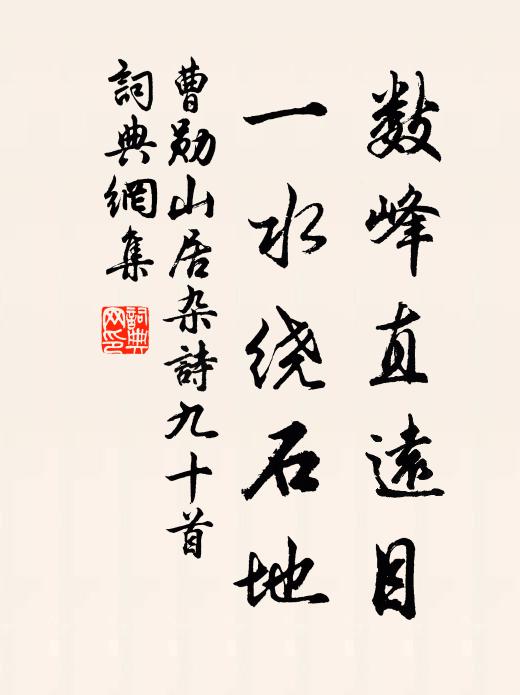 数峰直遠目
一水绕石地
曹勋山居杂詩九十首
詞典網集
詞典
网印